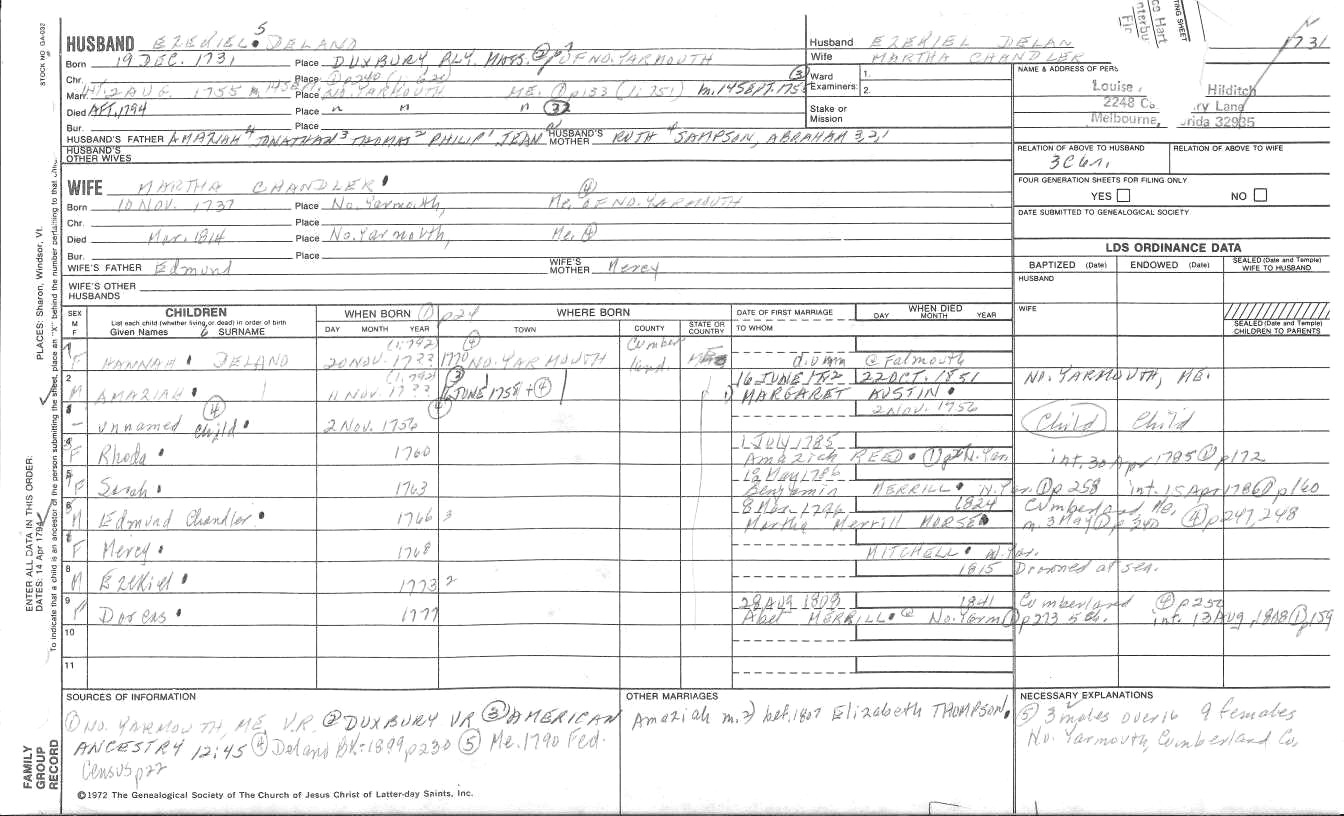 STOCK NO. GA-032
HUSBAND EZEKIEL 5 DELAND
Born 19 DEC. 1731 Place DUXBURY, PLY. MASS. ② OF NO. YARMOUTH
Chr. Place ① p240 (1:620)
Marr. 2 AUG. 1755 Place NO. YARMOUTH ME. ① p153 (1:751) ③ m. 14 SEPT. 1755
Died AFT. 1794 Place " " "
Bur. Place
HUSBAND'S FATHER AMARIAH 4 JONATHAN 3 THOMAS 2 PHILIP 1 JEAN HUSBAND'S MOTHER RUTH 4 SAMPSON, ABRAHAM 3,2,1
HUSBAND'S OTHER WIVES
Husband EZEKIEL DELAN
Wife MARTHA CHANDLER
Ward Examiners: 1.
2.
Stake or Mission
1731
NAME & ADDRESS OF PERS
Louise Hilditch
2248 Co ry Lang
Melbourne, orida 32935
RELATION OF ABOVE TO HUSBAND
RELATION OF ABOVE TO WIFE
FOUR GENERATION SHEETS FOR FILING ONLY
YES NO
DATE SUBMITTED TO GENEALOGICAL SOCIETY
WIFE MARTHA CHANDLER
Born 10 NOV. 1737 Place No. Yarmouth, Me. ④ OF NO. YARMOUTH
Chr. Place
Died Mar. 1814 Place No. Yarmouth, Me. ④
Bur. Place
WIFE'S FATHER Edmund WIFE'S MOTHER Mercy
WIFE'S OTHER HUSBANDS
LDS ORDINANCE DATA
BAPTIZED (Date) ENDOWED (Date) SEALED (Date and Temple) WIFE TO HUSBAND
HUSBAND
WIFE
SEALED (Date and Temple) CHILDREN TO PARENTS
SEX M F
CHILDREN
List each child (whether living or dead) in order of birth
Given Names 6 SURNAME
WHEN BORN ① p24
DAY MONTH YEAR
WHERE BORN
TOWN COUNTY STATE OR COUNTRY
DATE OF FIRST MARRIAGE
TO WHOM
WHEN DIED
DAY MONTH YEAR
1 F HANNAH DELAND (1:792) 20 NOV. 17?? 1770 ④ NO. YARMOUTH Cumber land. ME. d. unm @ Falmouth
2 M AMARIAH (1:792) 11 NOV. 17?? ③ JUNE 1758 + ④ 22 OCT. 1851 NO. YARMOUTH, ME.
MARGARET AUSTIN
unnamed Child ④ 2 NOV. 1756 2 NOV. 1756 Child Child
F Rhoda 1760 1 July 1785
Amaziah REED ① No. Yar. int. 30 Apr 1785 ① p172
F Sarah 1763 18 May 1786
Benjamin MERRILL N. Yar. ① p258 int. 15 Apr 1786 ① p160
M Edmund Chandler 1766 3 1824 Cumberland, Me. ④ p247, 248
Martha Merrill MORSE m. 3 May ① p 240
F Mercy 1768 MITCHELL N. Yar.
8 M Ezekiel 1773 2 1815 Drowned at sea.
9 F Dorcas 1777 28 AUG 1808 1841 Cumberland ④ p250
Abel MERRILL No. Yarm ① p273 5 ch. int. 13 AUG, 1808 ① 159
10
11
SOURCES OF INFORMATION
① NO. YARMOUTH, ME. V.R. ② DUXBURY VR ③ AMERICAN
ANCESTRY 12:45 ④ Deland BK-1899 p230 ⑤ Me. 1790 Fed.
Census p22
OTHER MARRIAGES
Amaziah m. 2) bef. 1807 Elizabeth THOMPSON.
NECESSARY EXPLANATIONS
⑤ 3 males over 16 9 females
No. Yarmouth, Cumberland Co.
©1972 The Genealogical Society of The Church of Jesus Christ of Latter-day Saints, Inc.
FAMILY GROUP RECORD
ENTER ALL DATA IN THIS ORDER:
DATES: 14 Apr 1794
PLACES: Sharon, Windsor, Vt.